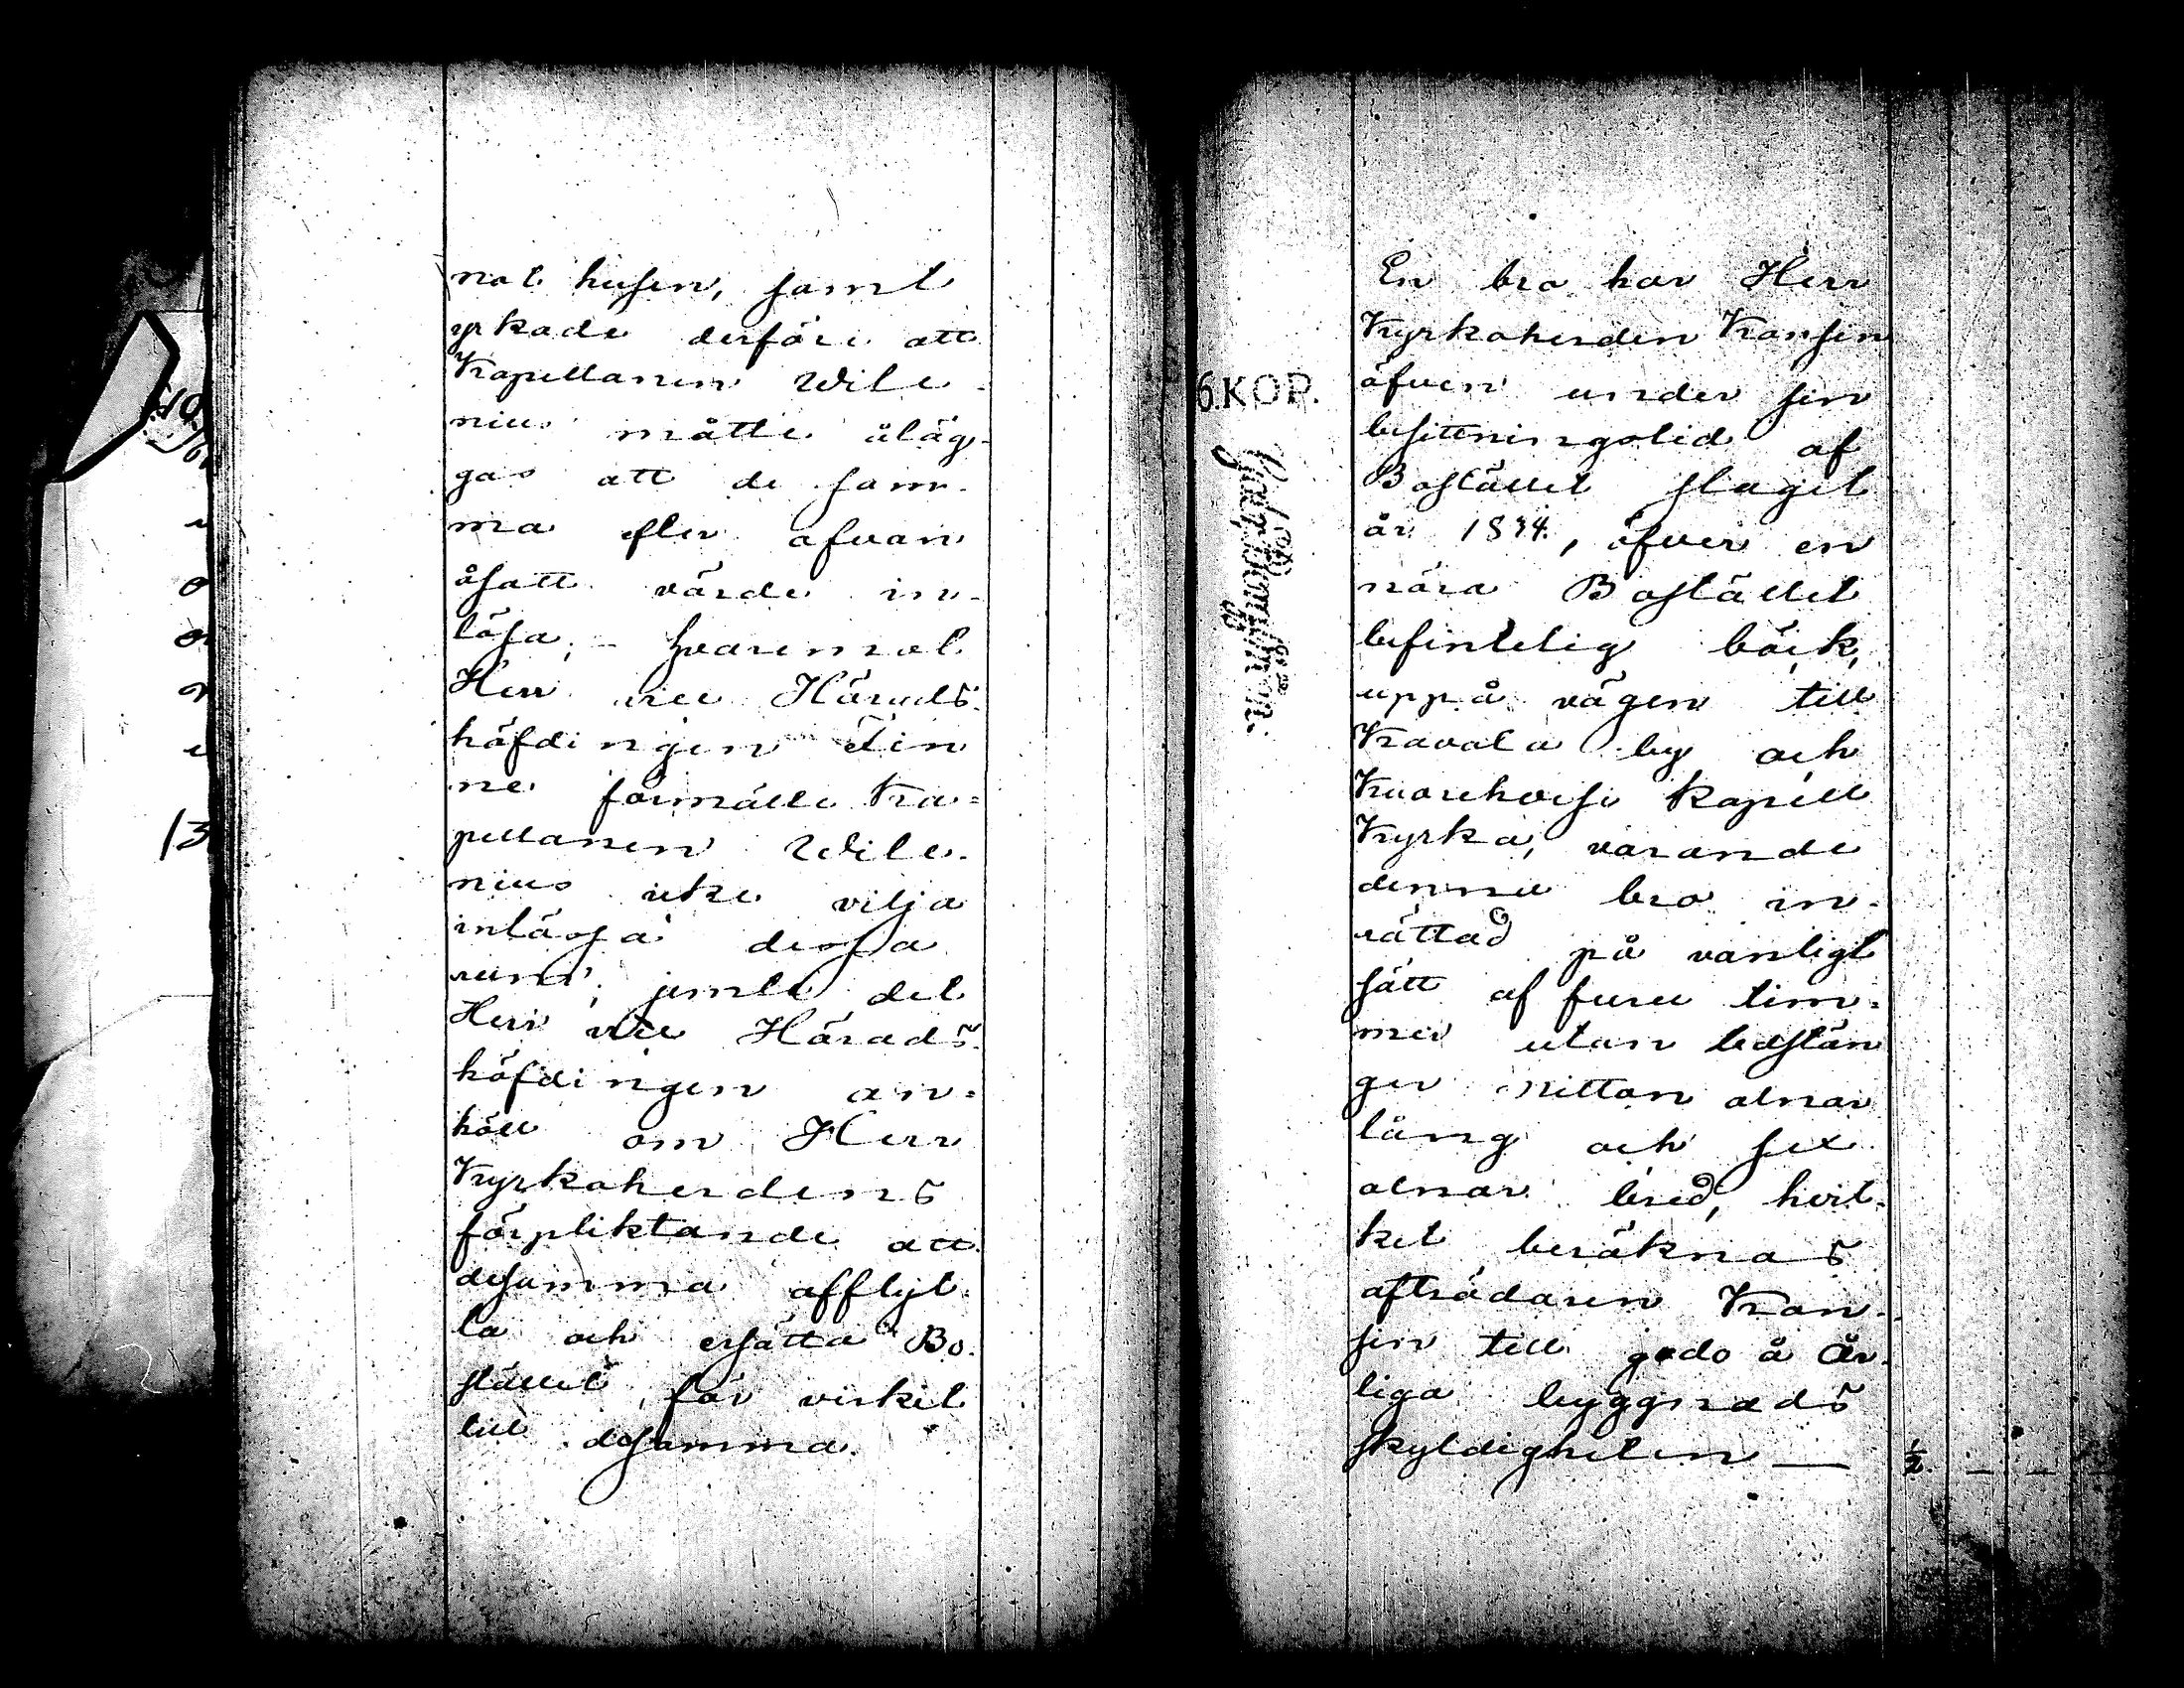 nat husen, samt
yrkade derföre att
Kapellanen Wile-
nius måtte åläg-
gas att de sam-
ma efter ofvan
åsatt värde in-
lösa; - hvaremot
Herr vice Härads-
höfdingen Tin
ne förmälte Ka-
pellanen Wile-
nius icke vilja
inlösa dessa
rum; jemte det
Herr vice Härads-
höfdingen an-
höll om Herr
Kyrkoherdens
förpliktande att
desamma afflyt-
ta och ersätta Bo-
stället för virket
till desamma.
En bro har Herr
Kyrkoherden Kransén
öfven under sin
besittningstid af
Bostället slagit
år 1834., öfver en
nära Bostället
befintelig bäck,
uppå vägen till
Kavala by och
Kuorehvesi Kapell
Kyrka, varande
denna bro in-
rättad på vanligt
sätt af furu tim-
mer utan ledstän
ger nittan alnar
lång och sex
alnar bred, hvil-
ket beräknas
afträdaren Kran-
sén till godo å År-
liga byggnads
skyldigheten — ½ - - -
6.KOP.
13